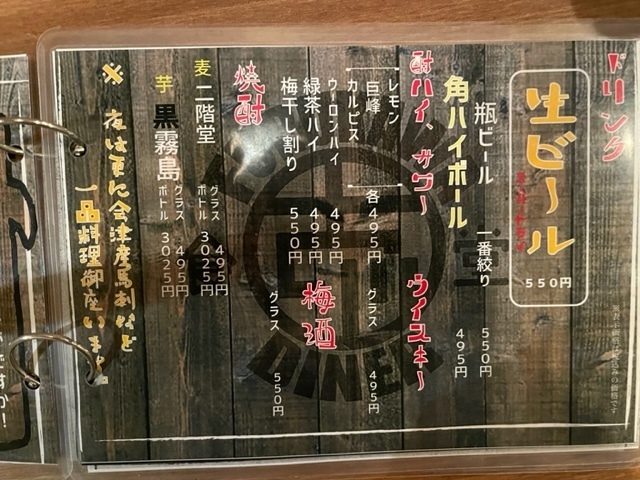 ドリンク
生ビール
550円
瓶ビール 一番絞り 550円
角ハイボール 495円
酎ハイ、サワー
レモン
巨峰
カルピス
各495円
ウーロンハイ 495円
緑茶ハイ 495円
梅干し割り 550円
ウイスキー
グラス 495円
梅酒
グラス 550円
焼酎
麦 二階堂
グラス 495円
ボトル 3025円
芋 黒霧島
グラス 495円
ボトル 3025円
※ 夜は更に会津産馬刺など
一品料理御座います
DINER